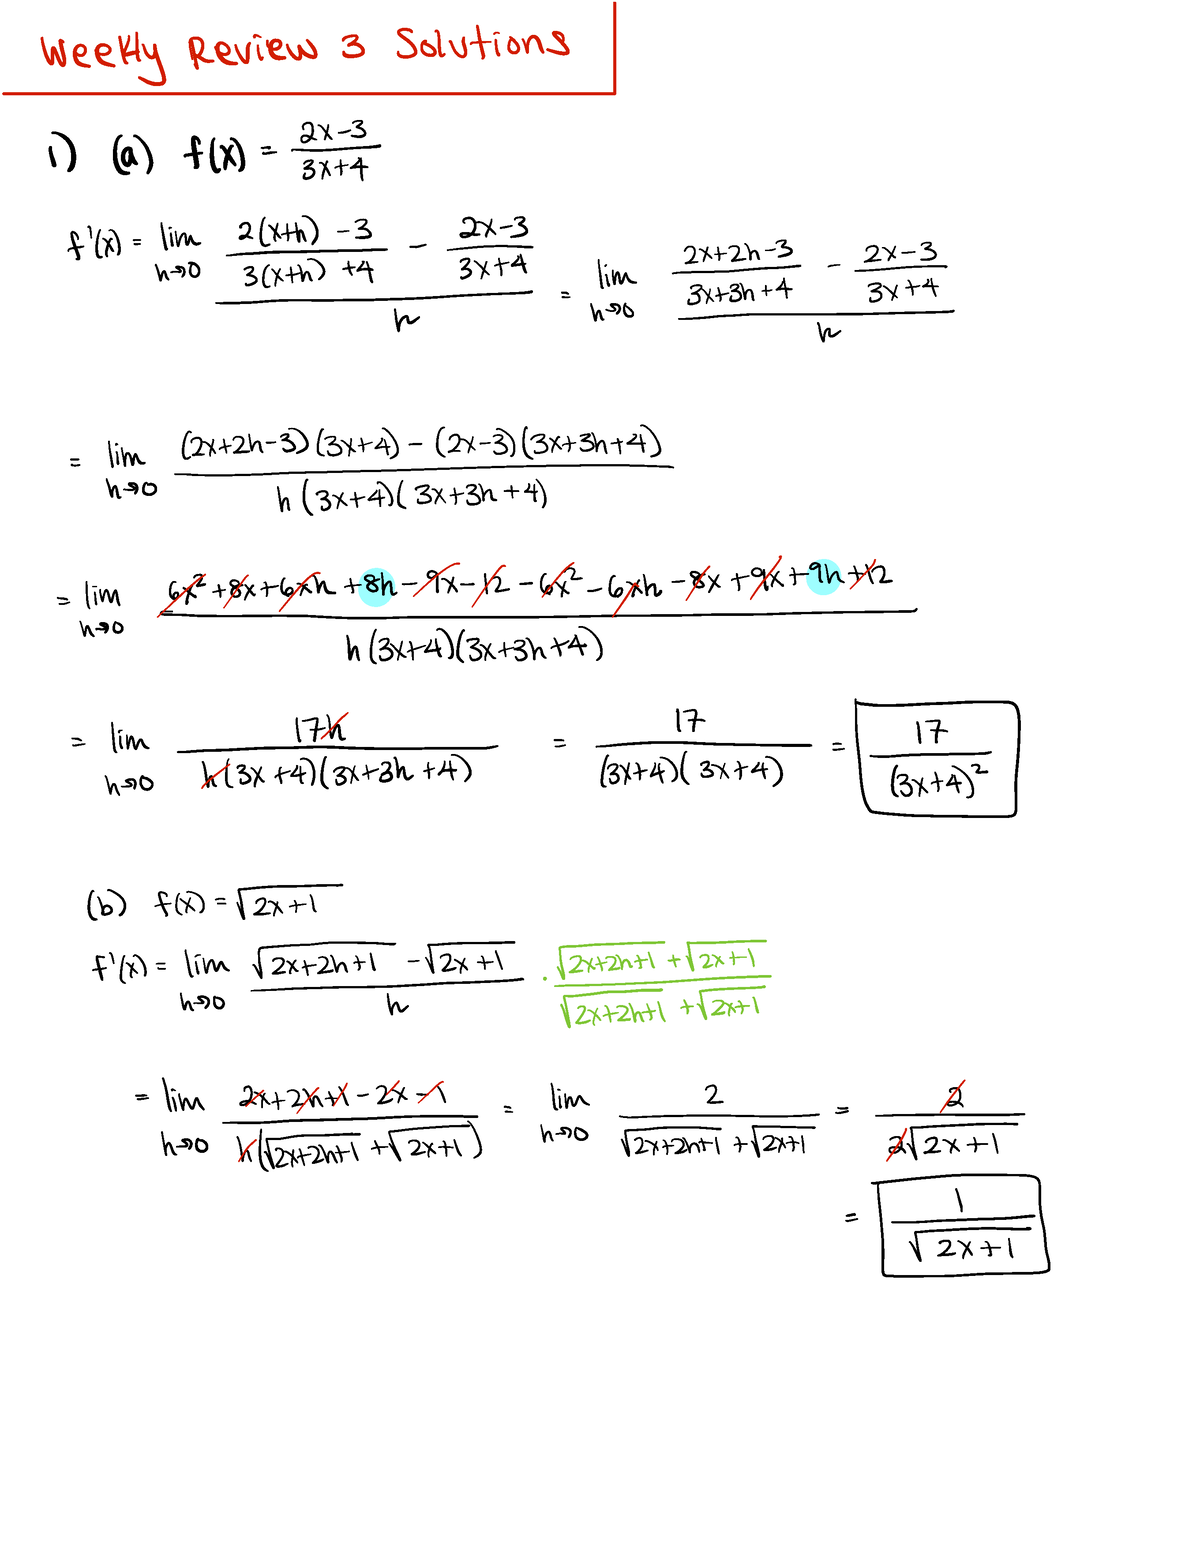 Weekly Review 3 Solutions
1) (a) f(x) = (2x-3)/(3x+4)
f'(x) = lim h→0 ((2(x+h) -3)/(3(x+h) +4) - (2x-3)/(3x+4))/h = lim h→0 ((2x+2h-3)/(3x+3h+4) - (2x-3)/(3x+4))/h
= lim h→0 ((2x+2h-3)(3x+4) - (2x-3)(3x+3h+4))/(h(3x+4)(3x+3h+4))
= lim h→0 (6x²+8x+6xh+8h-9x-12-6x²-6xh-8x+9x+9h+12)/(h(3x+4)(3x+3h+4))
= lim h→0 17h/(h(3x+4)(3x+3h+4)) = 17/((3x+4)(3x+4)) = 17/(3x+4)²
(b) f(x) = √(2x+1)
f'(x) = lim h→0 (√(2x+2h+1) - √(2x+1))/h · (√(2x+2h+1) + √(2x+1))/(√(2x+2h+1) + √(2x+1))
= lim h→0 (2x+2h+1-2x-1)/(h(√(2x+2h+1) + √(2x+1))) = lim h→0 2/(√(2x+2h+1) + √(2x+1)) = 2/(2√(2x+1))
= 1/√(2x+1)